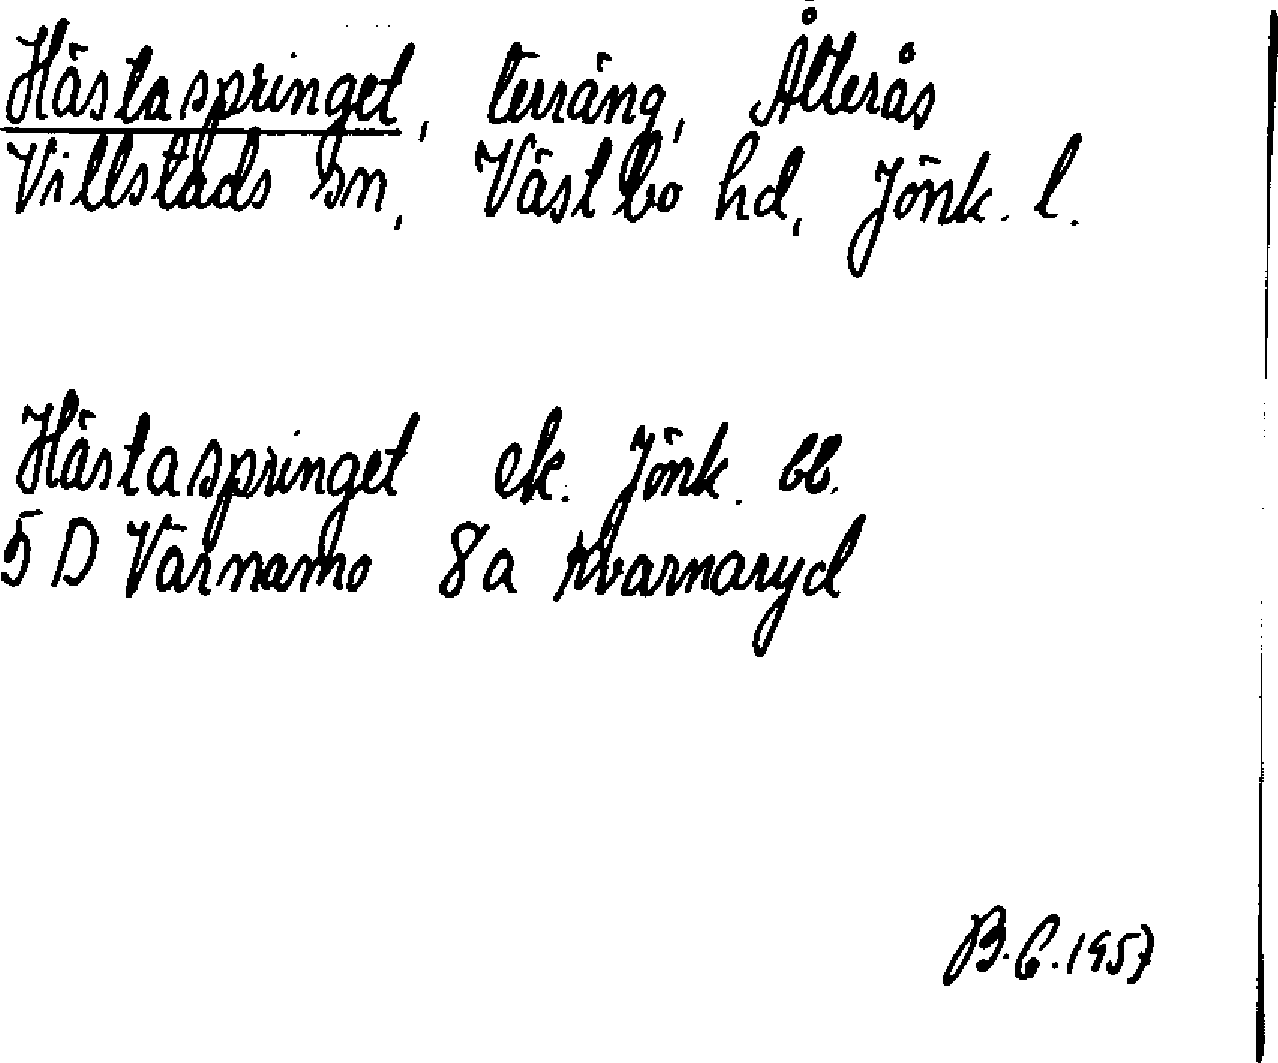 Hästaspringet, terräng, Ålterås
Villstads sn, Västbo hd, Jönk. l.
Hästaspringet ek. Jönk. bl.
5 D Värnamo 8a Kvarnaryd
B.C. 1957